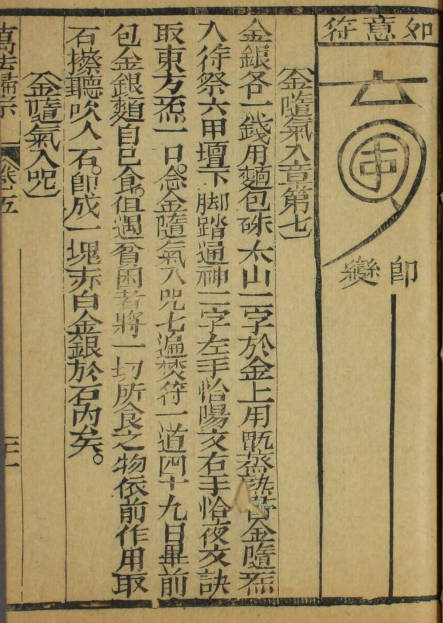 如意符
即變
（金隨氣入章第七）
金銀各一錢用麵包硃太山二字於金上用甑蒸熟書金隨炁
入符祭六甲壇下脚踏通神二字左手恰陽文右手恰夜文訣
取東方炁一口念金隨氣入咒七遍焚符一道四十九日畢前
包金銀麵自己食。但遇貧困者將一切所食之物依前作用取
石擦聽吹入石。即成一塊赤白金銀於石內矣。
（金隨氣入咒）
萬法歸宗 卷五